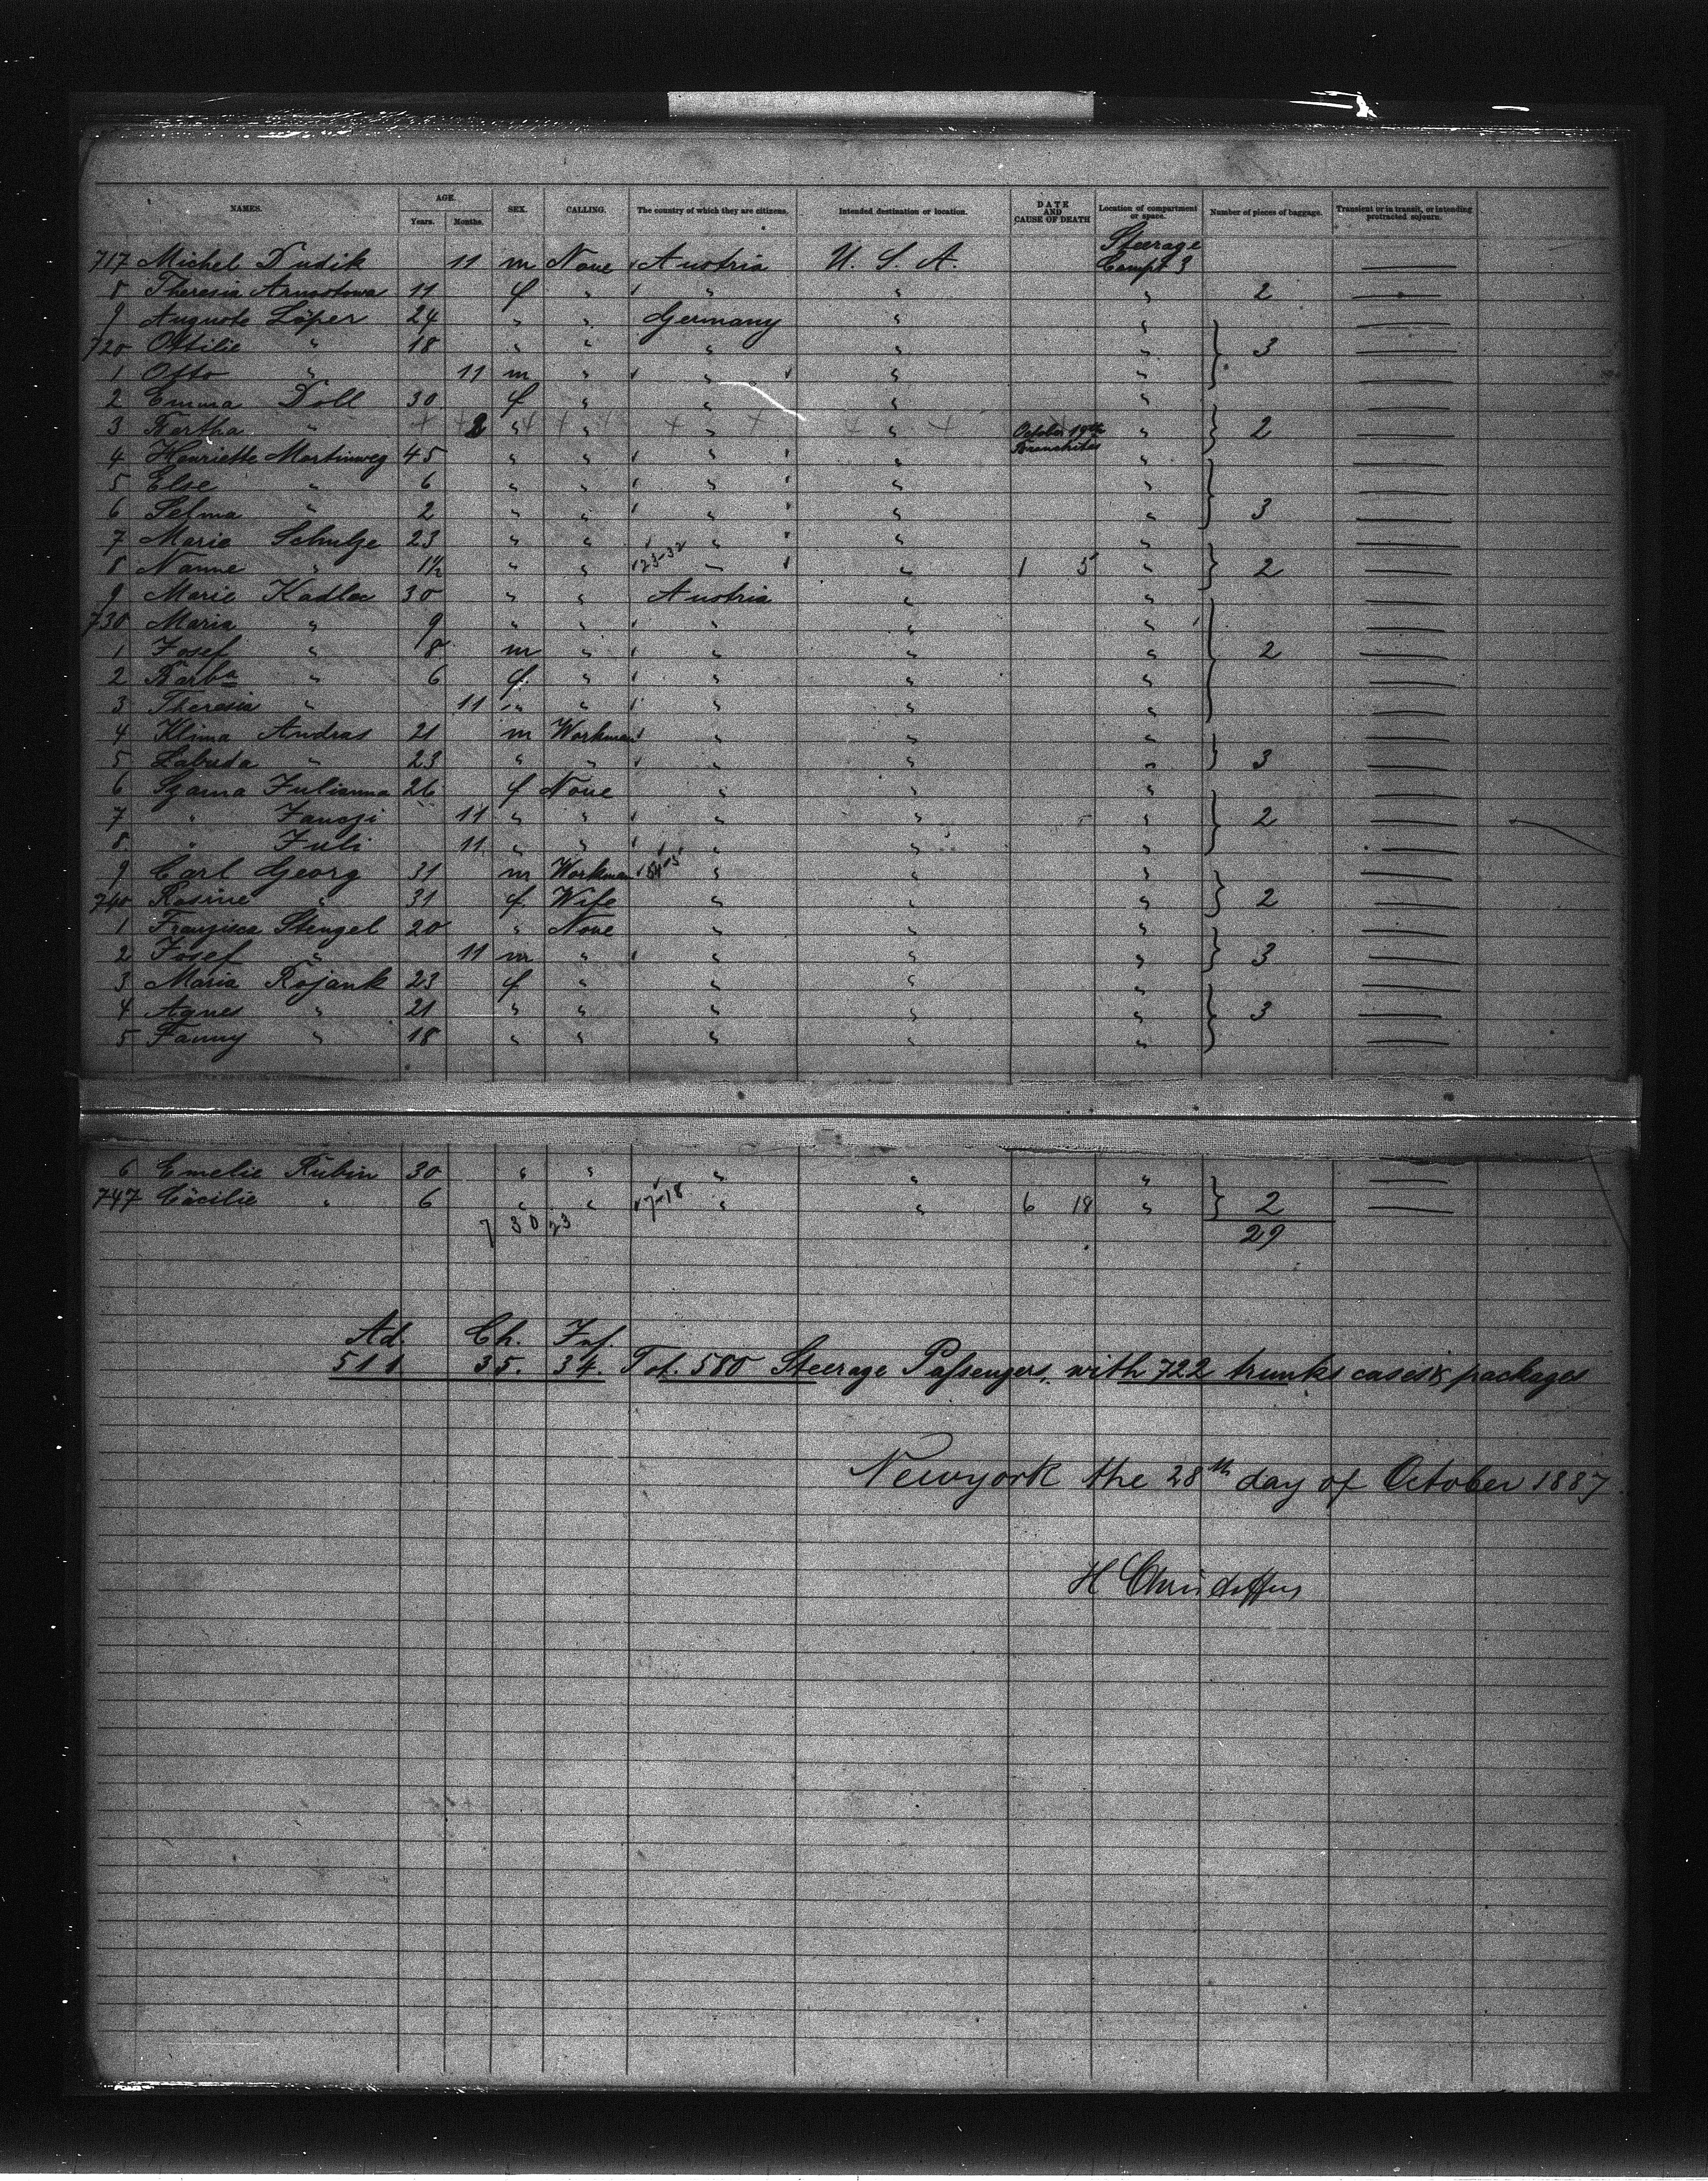 NAMES. AGE. Years. Months. SEX. CALLING. The country of which they are citizens. Intended destination or location. DATE AND CAUSE OF DEATH Location of compartment or space. Number of pieces of baggage. Transient or in transit, or intending protracted sojourn.
717 Michel Dudik 11 m None Austria U. S. A. Steerage Compt 3
8 Theresia 11 f " " " " 2
9 Auguste Löper 24 " " Germany " "
720 Ottilie " 18 " " " " " 3
1 Otto " 11 m " " " "
2 Emma Doll 30 f " " " "
3 Bertha " 2 " " " " October 19th Bronchites " 2
4 Henriette Martinweg 45 " " " " "
5 Else " 6 " " " " "
6 Selma " 2 " " " " " 3
7 Marie Schulze 23 " " " " "
8 Nanne " 1½ " " 23-32 " " 1 5 " 2
9 Marie Kadlec 30 " " Austria " "
730 Maria " 9 " " " " "
1 Josef " 8 m " " " " 2
2 Barba " 6 f " " " "
3 Theresia " 11 " " " " "
4 Klima Andras 21 m Workman " " "
5 Labuda " 23 " " " " " 3
6 Szarna Julianna 26 f None " " "
7 " Janczi 11 " " " " " 2
8 " Juli 11 " " " " "
9 Carl Georg 31 m Workman " " "
740 Rosine " 31 f Wife " " " 2
1 Franzisca Stengel 20 " None " " "
2 Josef " 11 m " " " " 3
3 Maria Bojank 23 f " " " "
4 Agnes " 21 " " " " " 3
5 Fanny " 18 " " " " "
6 Emelie Rubin 30 " " " " "
747 Cäcilie " 6 " " 7-18 " " 6 18 " 2
7 30 23 29
Ad. Ch. Inf.
511 35. 34. Tot. 580 Steerage Passengers, with 722 trunks cases & packages
Newyork the 28th day of October 1887.